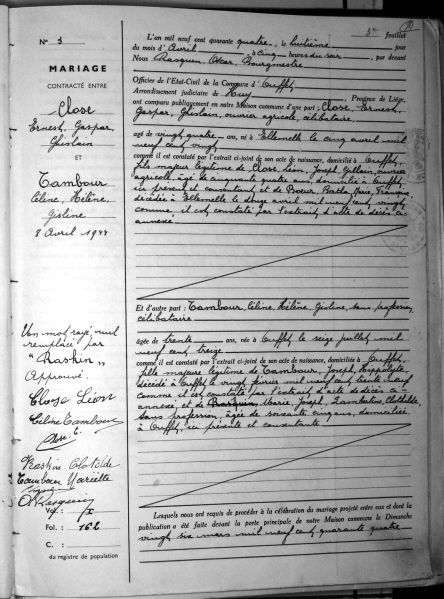 3e feuillet
N° 3
MARIAGE
CONTRACTÉ ENTRE
Close
Ernest, Gaspar,
Ghislain
ET
Tambour
Céline, Hélène,
Gisline
8 Avril 1944
Un mot rayé nul
remplacé par
"Raskin"
Approuvé.
Close Léon
Céline Tambour
Close E.
Raskin Clotilde
Tambour Mariette
O. Rasquin
Vol. : I
Fol. : 162
C. :
du registre de population
L'an mil neuf cent quarante quatre, le huitième jour
du mois d'Avril à cinq heures du soir, par devant
Nous Rasquin, Oscar, Bourgmestre
Officier de l'Etat-Civil de la Commune d'Ouffet
Arrondissement judiciaire de Huy, Province de Liége,
ont comparu publiquement en notre Maison commune d'une part : Close, Ernest,
Gaspar, Ghislain, ouvrier agricole, célibataire
âgé de vingt quatre ans, né à Ellemelle le cinq avril mil
neuf cent vingt
comme il est constaté par l'extrait ci-joint de son acte de naissance, domicilié à Ouffet,
fils majeur légitime de Close, Léon, Joseph, ouvrier
agricole, âgé de cinquante quatre ans, domicilié à Ouffet,
ici présent et consentant et de Marie, Françoise,
décédée à Ellemelle le douze avril mil neuf cent vingt
comme, il est constaté par l'extrait d'acte de décès ci-
annexé
Et d'autre part : Tambour, Céline, Hélène, Gisline, sans profession,
célibataire
âgée de trente ans, née à Ouffet le seize juillet mil
neuf cent treize
comme il est constaté par l'extrait ci-joint de son acte de naissance, domiciliée à Ouffet,
fille majeure légitime de Tambour, Joseph, Hippolyte,
décédé à Ouffet le vingt février mil neuf cent trente neuf
comme il est constaté par l'extrait d'acte de décès ci-
annexé, et de Marie, Joseph, Lambertine, Clothilde,
sans profession, âgée de soixante cinq ans, domiciliée
à Ouffet, ici présente et consentante
Lesquels nous ont requis de procéder à la célébration du mariage projeté entre eux et dont la
publication a été faite devant la porte principale de notre Maison commune le Dimanche
vingt six mars mil neuf cent quarante quatre